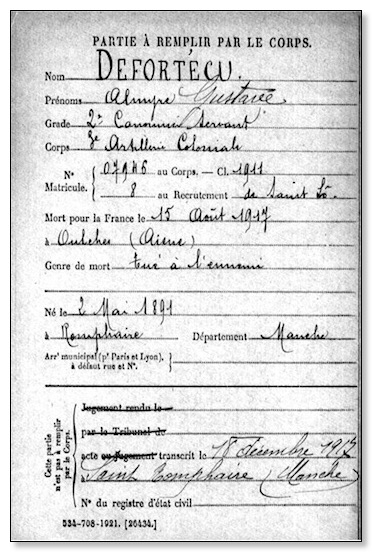 PARTIE À REMPLIR PAR LE CORPS.
Nom DEFORTÉCU.
Prénoms Gustave
Grade 2e Canonnier Servant
Corps 3e Artillerie Coloniale
N° Matricule. { 07946 au Corps. — Cl. 1911
8 au Recrutement de Saint Lô.
Mort pour la France le 15 Août 1917
à Oulches (Aisne)
Genre de mort Tué à l'ennemi
Né le 2 Mai 1891
à Romphaire Département Manche
Arrt municipal (pr Paris et Lyon), à défaut rue et N°. }
Cette partie n'est pas à remplir par le Corps. {
Jugement rendu le
par le Tribunal de
acte ou jugement transcrit le 18 décembre 1917
à Saint Romphaire (Manche)
N° du registre d'état civil
534-708-1921. [26434.]